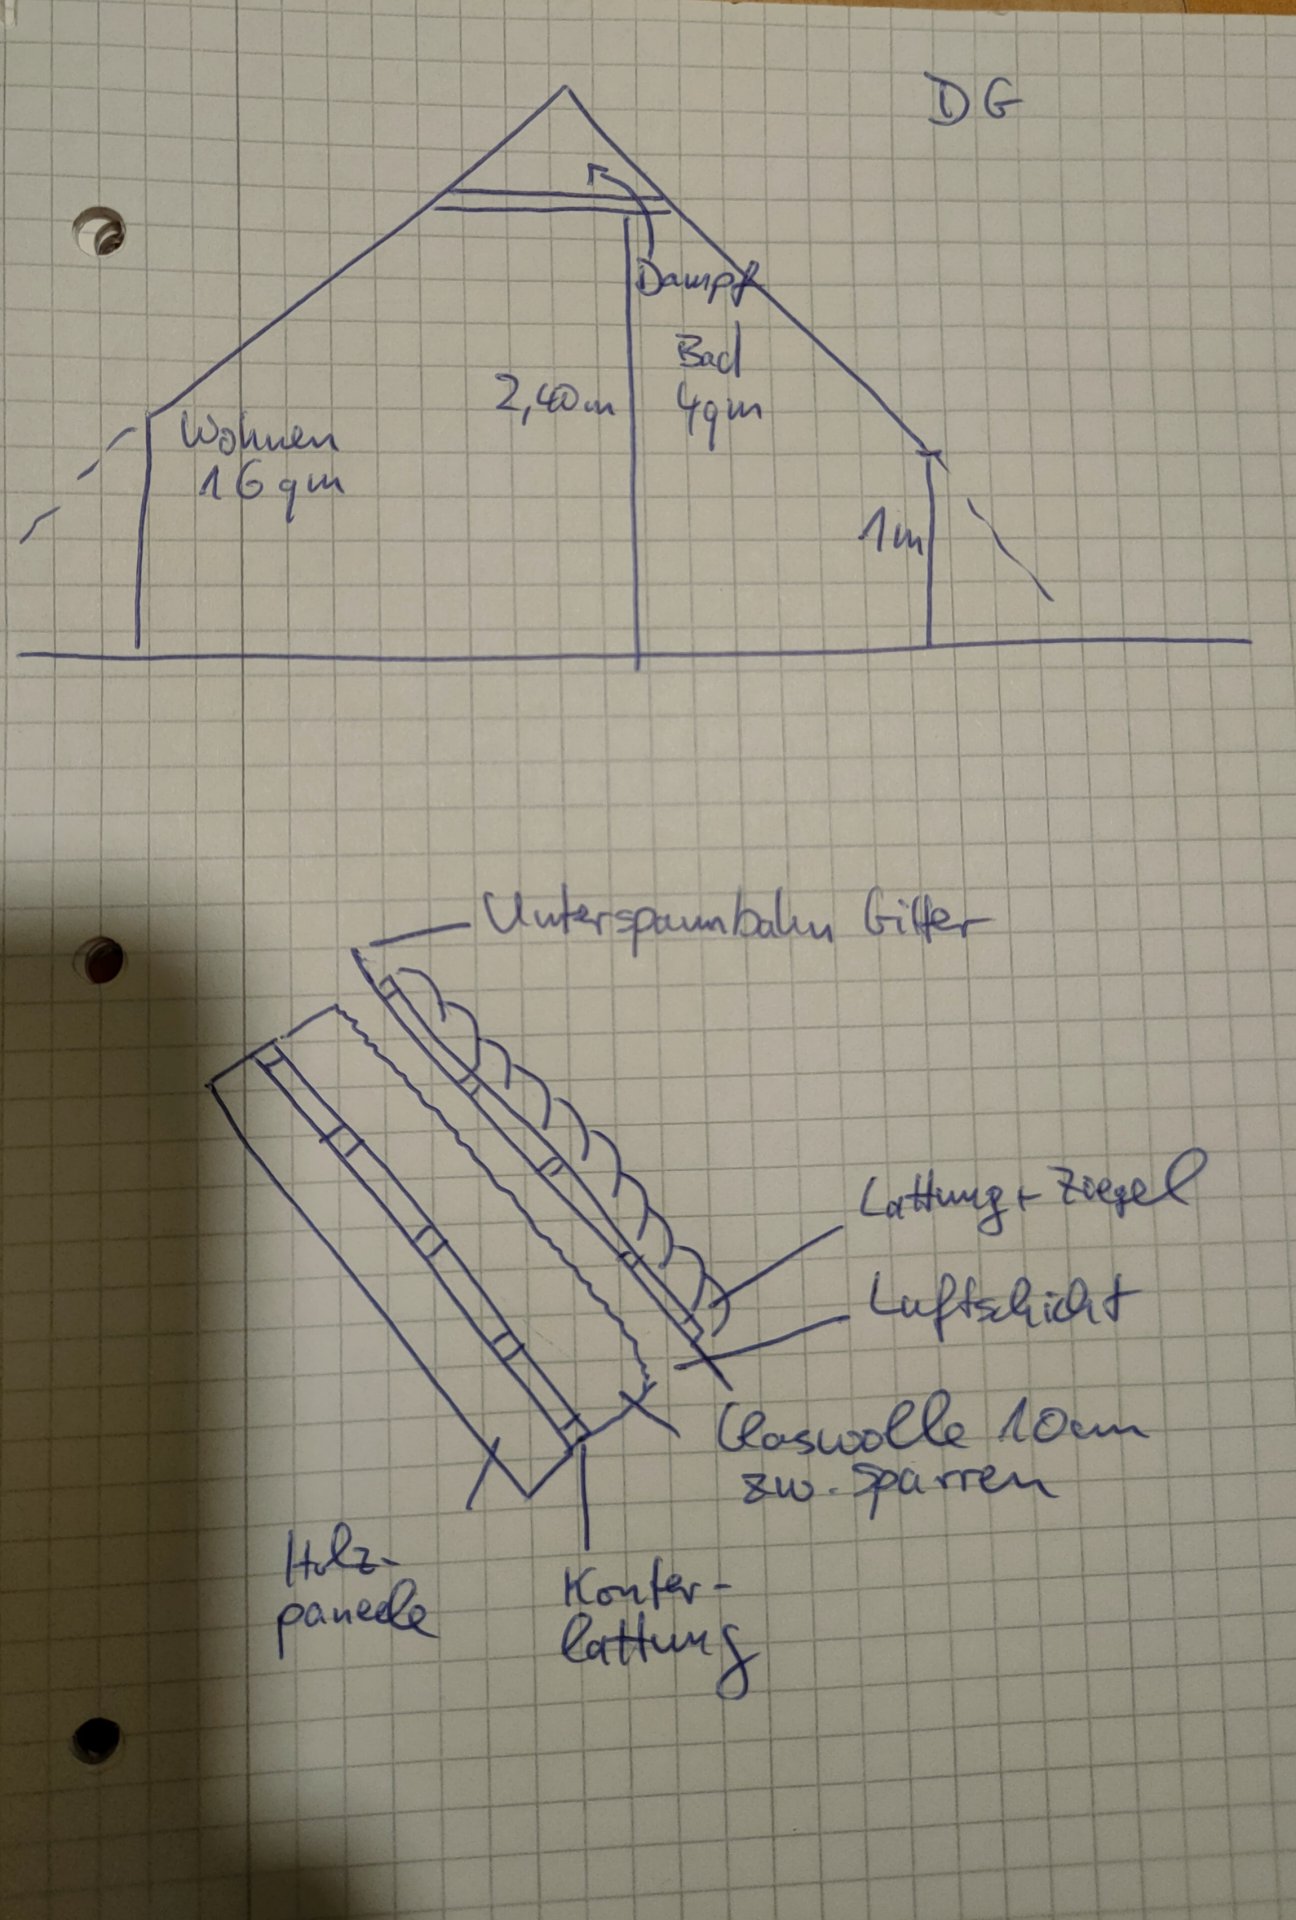 DG
Dampf
Bad
2,40m
4qm
Wohnen
16qm
1m
Unterspannbahn Gitter
Lattung + Ziegel
Luftschicht
Glaswolle 10cm
zw. Sparren
Holz-
paneele
Konter-
lattung